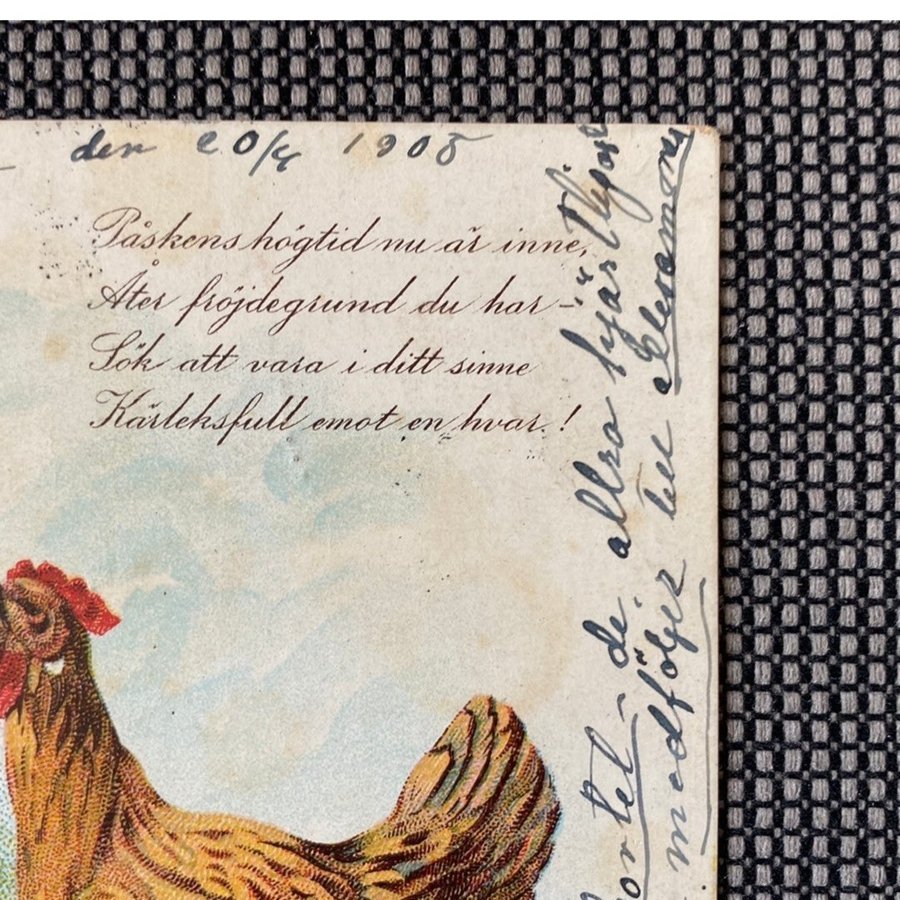 den 20/4 1908
Påskens högtid nu är inne,
Åter fröjdegrund du har –
Sök att vara i ditt sinne
Kärleksfull emot en hvar!
de allra hjärtligast
medföljer till